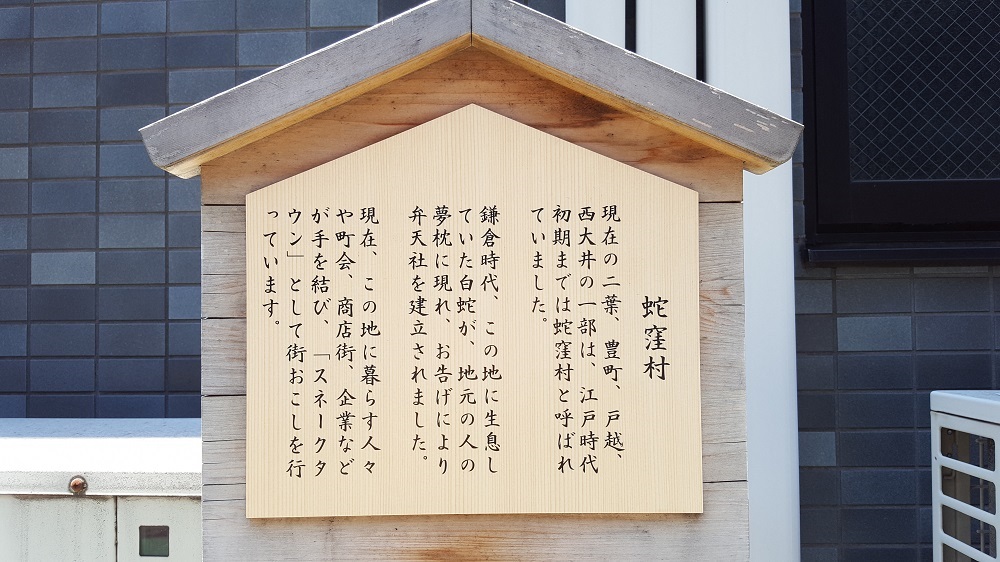 蛇窪村
現在の二葉、豊町、戸越、
西大井の一部は、江戸時代
初期までは蛇窪村と呼ばれ
ていました。
鎌倉時代、この地に生息し
ていた白蛇が、地元の人の
夢枕に現れ、お告げにより
弁天社を建立されました。
現在、この地に暮らす人々
や町会、商店街、企業など
が手を結び、「スネークタ
ウン」として街おこしを行
っています。